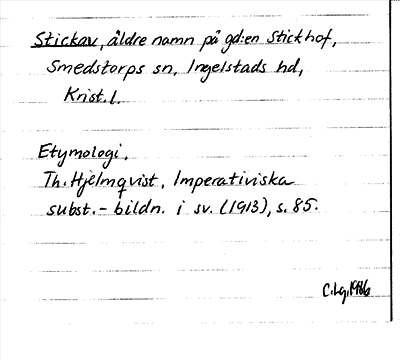 Stickav, äldre namn på gd:en Stickhof,
Smedstorps sn, Ingelstads hd,
Krist.l.
Etymologi.
Th. Hjelmqvist, Imperativiska
subst.-bildn. i sv. (1913), s. 85.
C.Lg. 1986